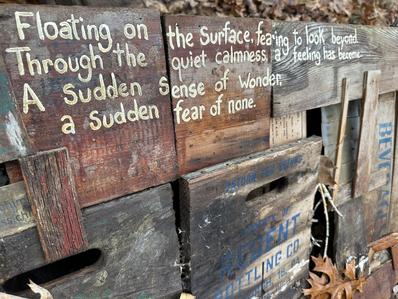 Floating on the Surface. fearing to look beyond
Through the quiet calmness, a feeling has become
A Sudden Sense of Wonder,
a sudden fear of none.
BEVERAGE
BOTTLING CO.